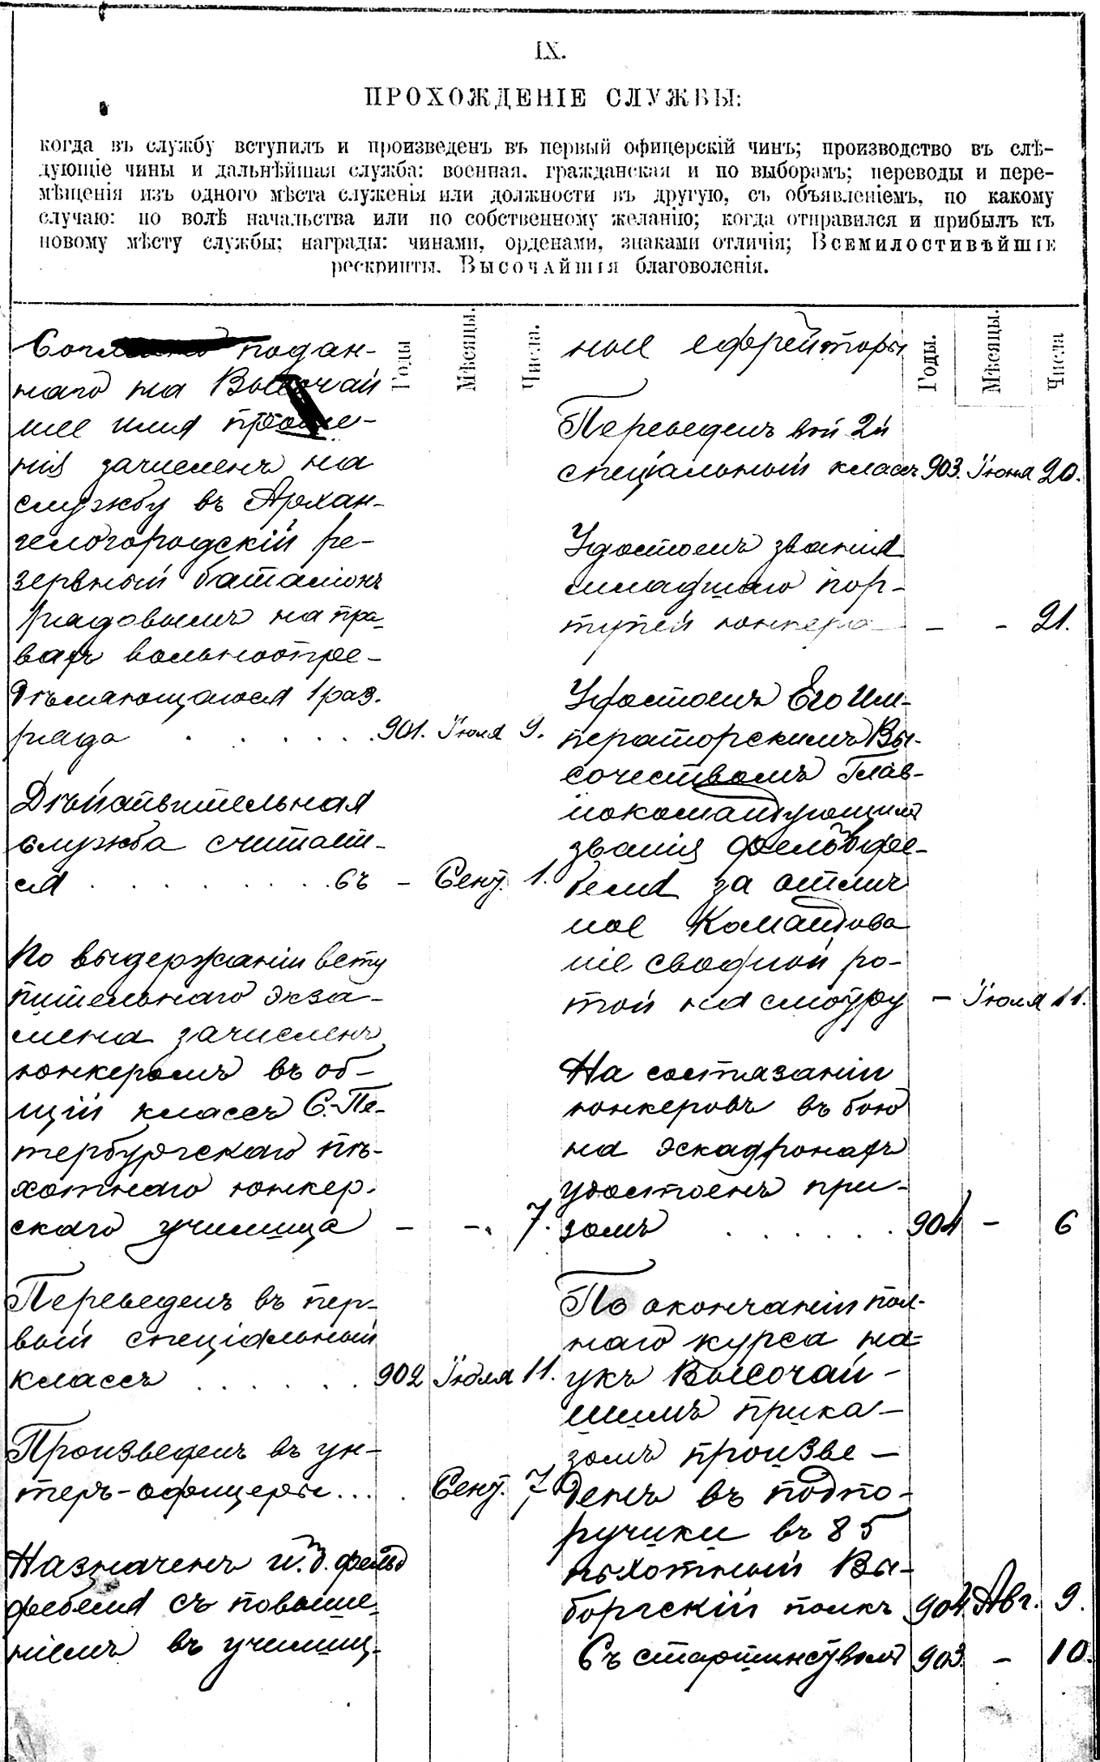 IX.
ПРОХОЖДЕНІЕ СЛУЖБЫ:
когда въ службу вступилъ и произведенъ въ первый офицерскій чинъ; производство въ слѣ-
дующіе чины и дальнѣйшая служба: военная, гражданская и по выборамъ; переводы и пере-
мѣщенія изъ одного мѣста служенья или должности въ другую, съ объявленіемъ, по какому
случаю: по волѣ начальства или по собственному желанію; когда отправился и прибылъ къ
новому мѣсту службы; награды: чинами, орденами, знаками отличія; Всемилостивѣйшіе
рескрипты. Высочайшія благоволенія.
Годы
Мѣсяцы.
Числа.
подан-
наго на Высочай
шее имя проше-
нія зачисленъ на
службу въ Архан-
гелогородскій ре-
зервный баталіонъ
рядовымъ на пра-
вахъ вольноопре-
дѣляющагося 1 раз.
ряда . . . . . . 901. Іюля 9.
Дѣйствительная
служба считает-
ся . . . . . . . . . съ — Сент. 1.
По выдержаніи всту
пительнаго экза-
мена зачисленъ
юнкеромъ въ об-
щій классъ С.-Пе-
тербургскаго пѣ-
хотнаго юнкер-
скаго училища — —. 7.
Переведенъ въ пер-
вый спеціальный
классъ . . . . . . 902 Іюля 11.
Произведенъ въ ун-
теръ-офицеры.... Сент. 7
Назначенъ и.д. фельд
фебеля съ повыше-
ніемъ въ училищ-
Годы.
Мѣсяцы.
Числа
ные ефрейторы
Переведенъ во 2й
спеціальный классъ 903. Іюня 20.
Удостоенъ званія
младшаго пор-
тупей юнкера — — 21.
Удостоенъ Его Им-
ператорскимъ Вы-
сочествомъ Глав-
нокомандующимъ
званія фельдфе-
беля за отлич
ное Командова
ніе сводной ро-
той на смотру — Іюля 11.
На состязаніи
юнкеровъ въ бою
на эскадронахъ
удостоенъ при-
зомъ . . . . . . 904 — 6
По окончаніи пол-
наго курса на-
укъ Высочай-
шимъ прика-
зомъ произве-
денъ въ подпо-
ручики въ 85
пѣхотный Вы-
боргскій полкъ 904 Авг. 9.
Съ старшинствомъ 903. — 10.